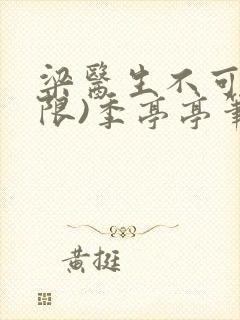 梁醫生不可
限)季亭亭筆
黃挺